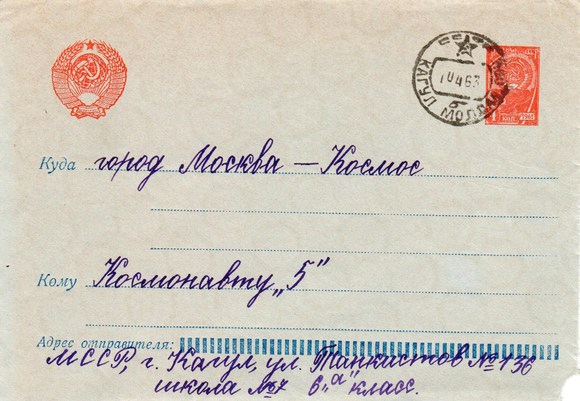 КАГУЛ МОЛД. ССР
10463
б
4 КОП.
Куда город Москва — Космос
Кому Космонавту „5"
Адрес отправителя:
МССР, г. Кагул, ул. Танкистов № 136
школа № 7 6 „а" класс.